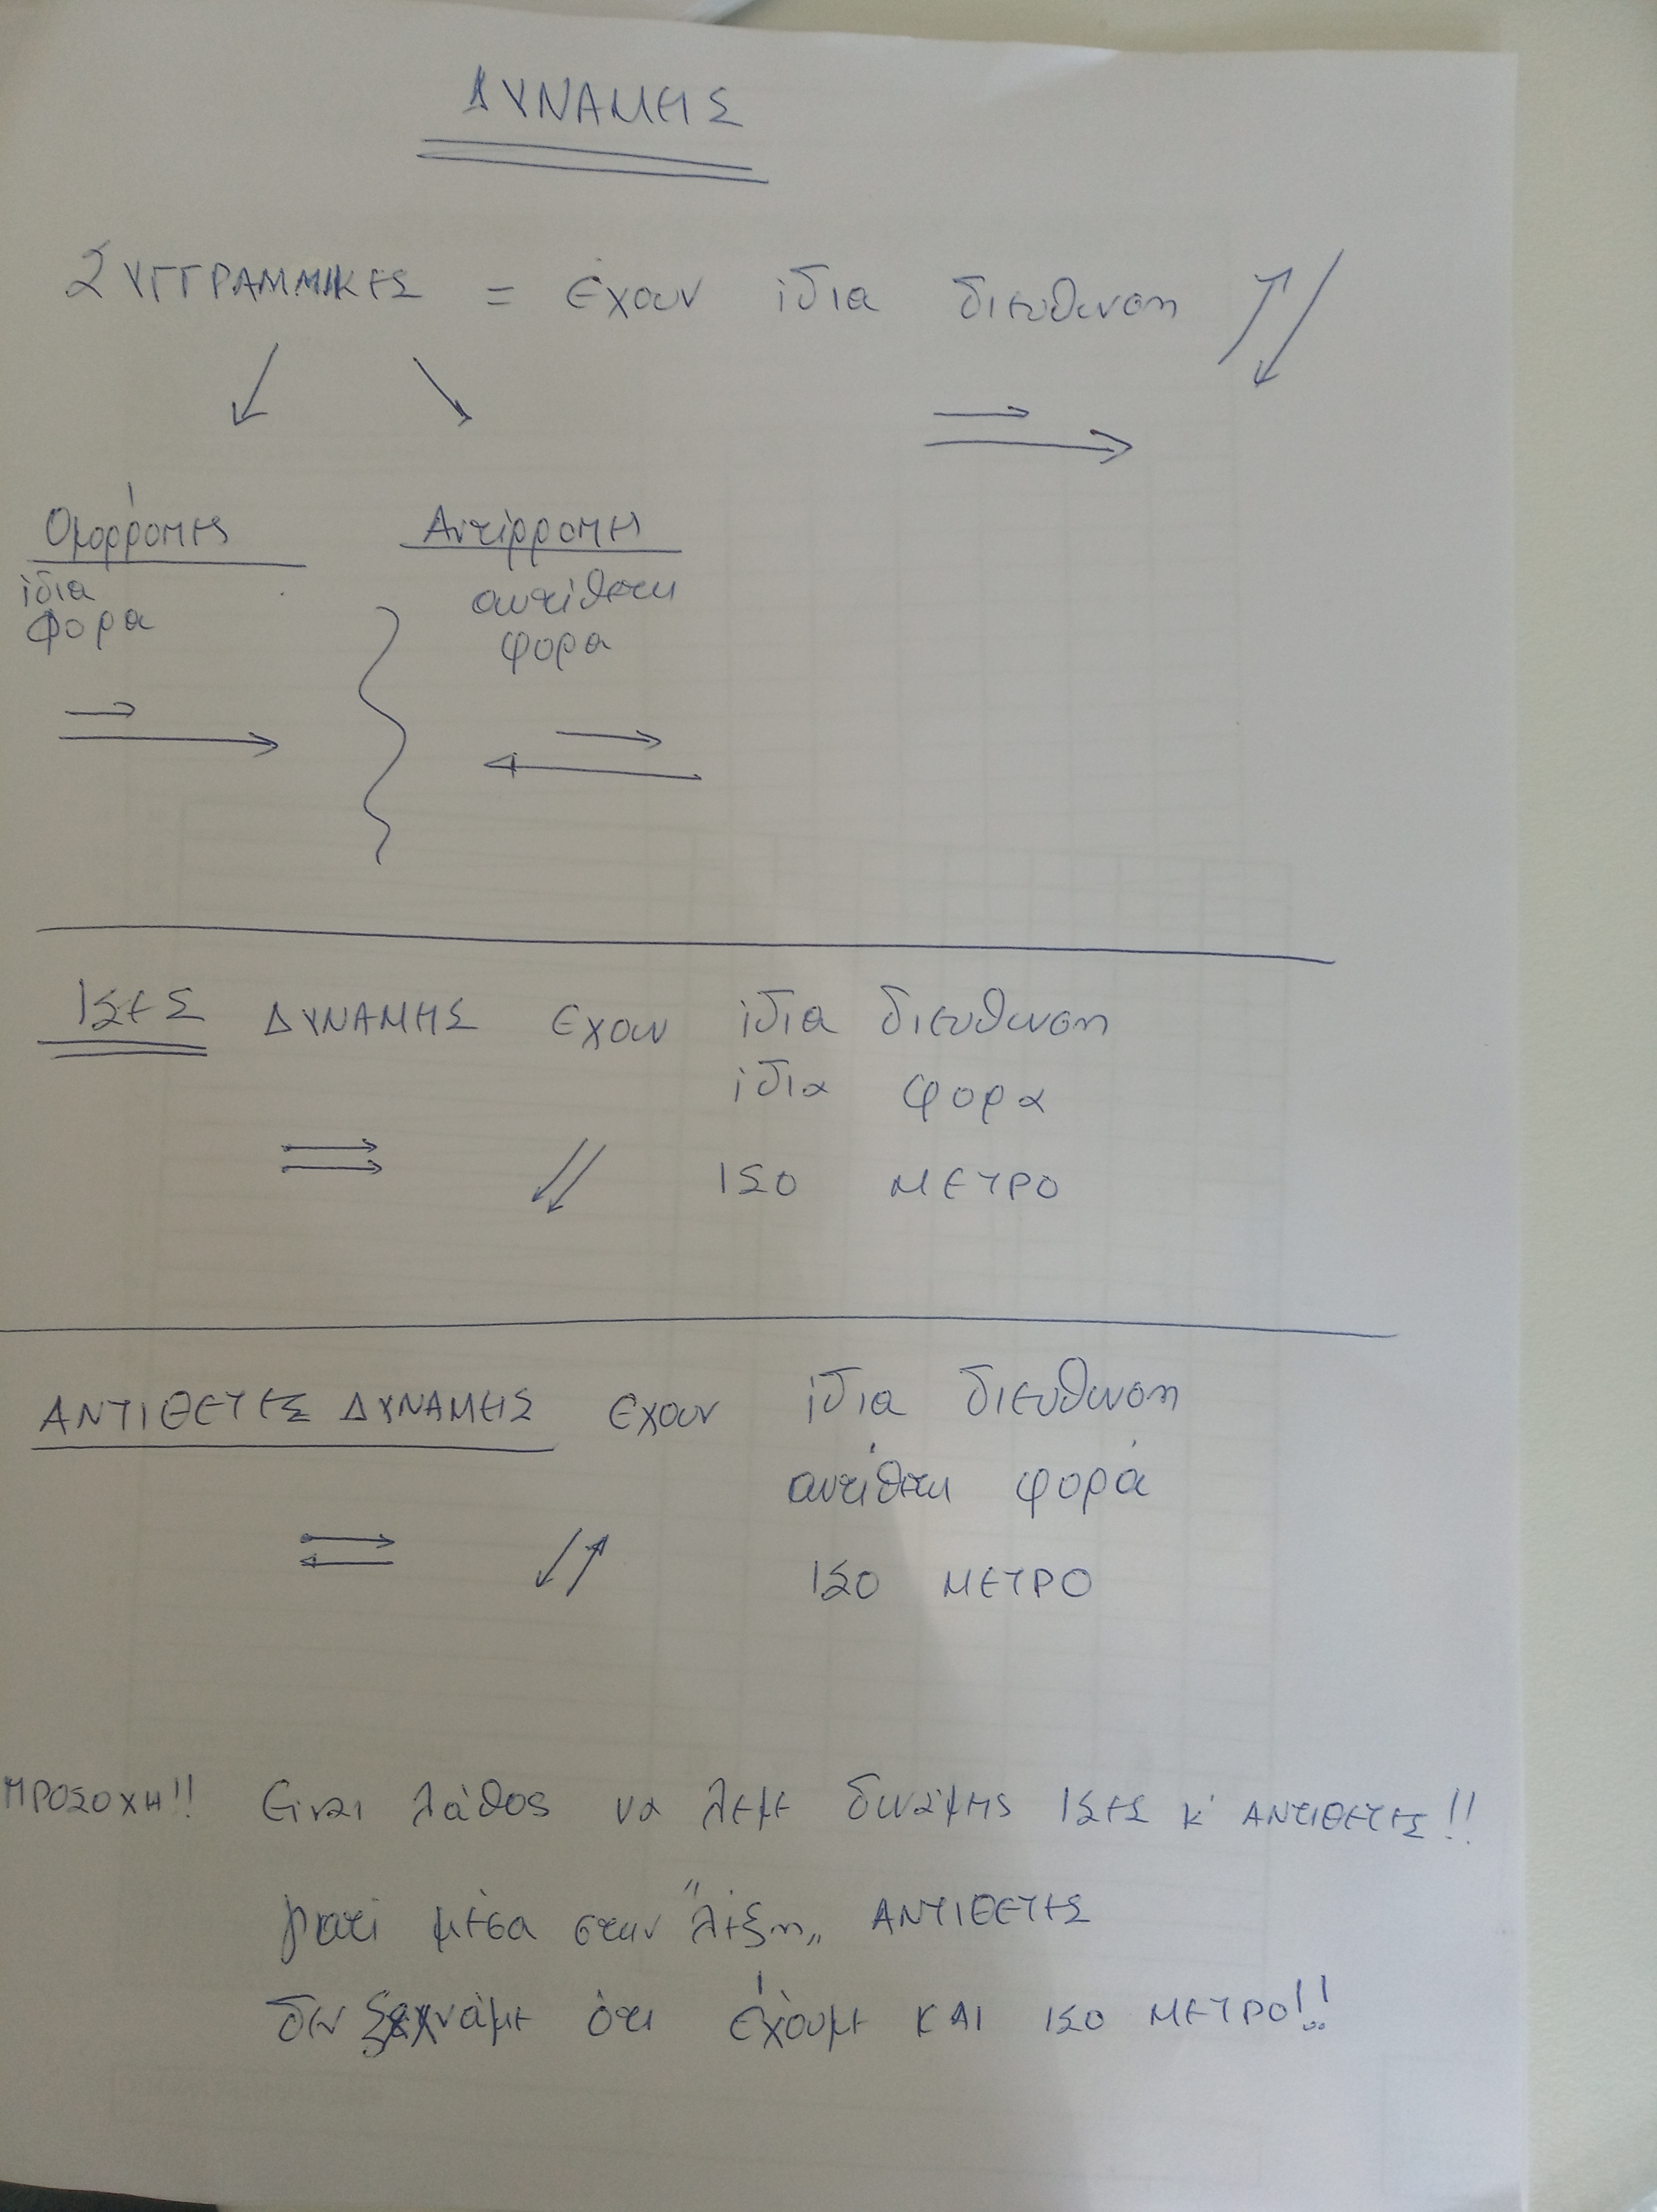 ΔΥΝΑΜΕΙΣ
ΣΥΓΓΡΑΜΜΙΚΕΣ = έχουν ίδια διευθυνση
Ομόρροπες Αντίρροπες
ίδια φορα αντίθετη φορα
ΙΣΕΣ ΔΥΝΑΜΕΙΣ εχουν ίδια διευθυνση
ίδια φορα
ΙΣΟ ΜΕΤΡΟ
ΑΝΤΙΘΕΤΕΣ ΔΥΝΑΜΕΙΣ εχουν ίδια διευθυνση
αντίθετη φορά
ΙΣΟ ΜΕΤΡΟ
ΠΡΟΣΟΧΗ!! Ειναι λάθος να λεμε δυνάμεις ΙΣΕΣ κ' ΑΝΤΙΘΕΤΕΣ!!
γιατί μέσα στην "λέξη" ΑΝΤΙΘΕΤΕΣ
δεν ξεχνάμε ότι έχουμε ΚΑΙ ΙΣΟ ΜΕΤΡΟ!!